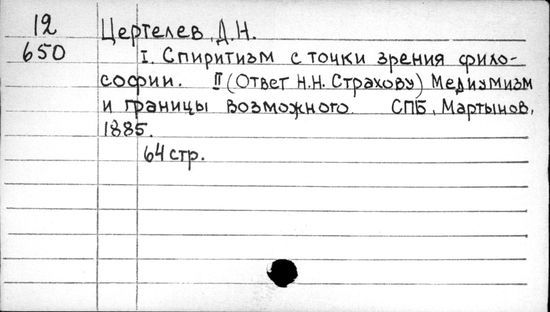 12 Цертелев, Д.Н.
650 I. Спиритизм с точки зрения фило-
софии. II (Ответ Н.Н. Страхову) Медиумизм
и границы возможного. СПБ, Мартынов,
1885.
64 стр.